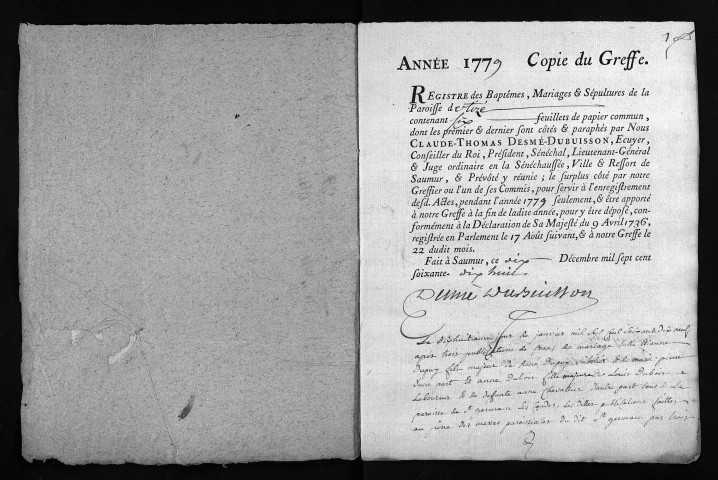 ANNÉE 1779 Copie du Greffe.
REGISTRE des Baptêmes, Mariages & Sépultures de la
Paroisse d'Izé
contenant six feuillets de papier commun,
dont les premier & dernier sont côtés & paraphés par Nous
CLAUDE-THOMAS DESMÉ-DUBUISSON, Ecuyer,
Conseiller du Roi, Président, Sénéchal, Lieutenant-Général
& Juge ordinaire en la Sénéchaussée, Ville & Ressort de
Saumur, & Prévôté y réunie ; le surplus côté par notre
Greffier ou l'un de ses Commis, pour servir à l'enregistrement
desd. Actes, pendant l'année 1779 seulement, & être apporté
à notre Greffe à la fin de ladite année, pour y être déposé, con-
formément à la Déclaration de Sa Majesté du 9 Avril 1736,
registrée en Parlement le 17 Août suivant, & à notre Greffe le
22 dudit mois.
Fait à Saumur, ce dix Décembre mil sept cent
soixante dix huit.
Desmé Dubuisson
Le dixhuitieme jour de janvier mil sept cent soixante dix neuf
apres trois publications de bans de mariage entre Etienne
Dupuy fils majeur de René Dupuy et de marie
d'une part et anne dubois fille majeure de Louis Dubois
Laboureur & de deffunte anne Chevallier d'autre part tous de la
paroisse de St germain les dittes publications faittes
au prône des messes paroissiales du dit St germain par trois